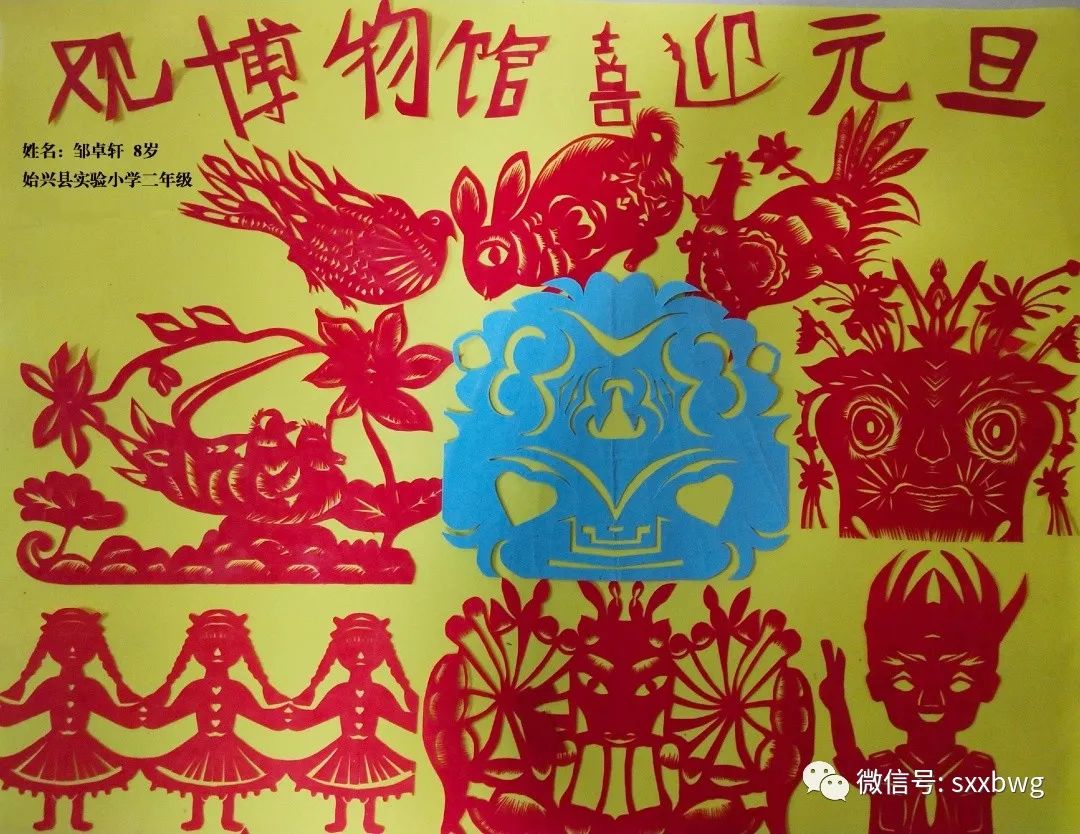 观博物馆喜迎元旦
姓名：邹卓轩 8岁
始兴县实验小学二年级
微信号: sxxbwg